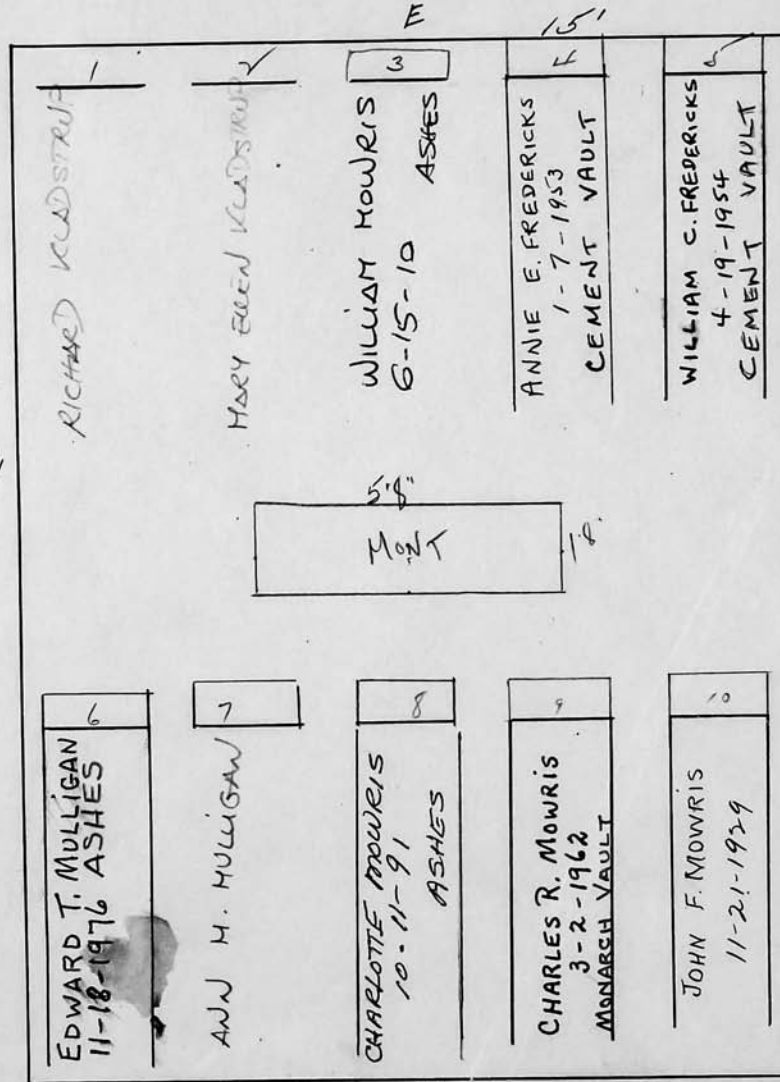 E
15'
1
RICHARD KLADSTRUP
2
MARY ELLEN KLADSTRUP
3
WILLIAM MOWRIS
6-15-10
ASHES
4
ANNIE E. FREDERICKS
1-7-1953
CEMENT VAULT
5
WILLIAM C. FREDERICKS
4-19-1954
CEMENT VAULT
5'8"
MONT
1'8"
6
EDWARD T. MULLIGAN
11-18-1976 ASHES
7
ANN M. MULLIGAN
8
CHARLOTTE MOWRIS
10-11-91
ASHES
9
CHARLES R. MOWRIS
3-2-1962
MONARCH VAULT
10
JOHN F. MOWRIS
11-21-1929